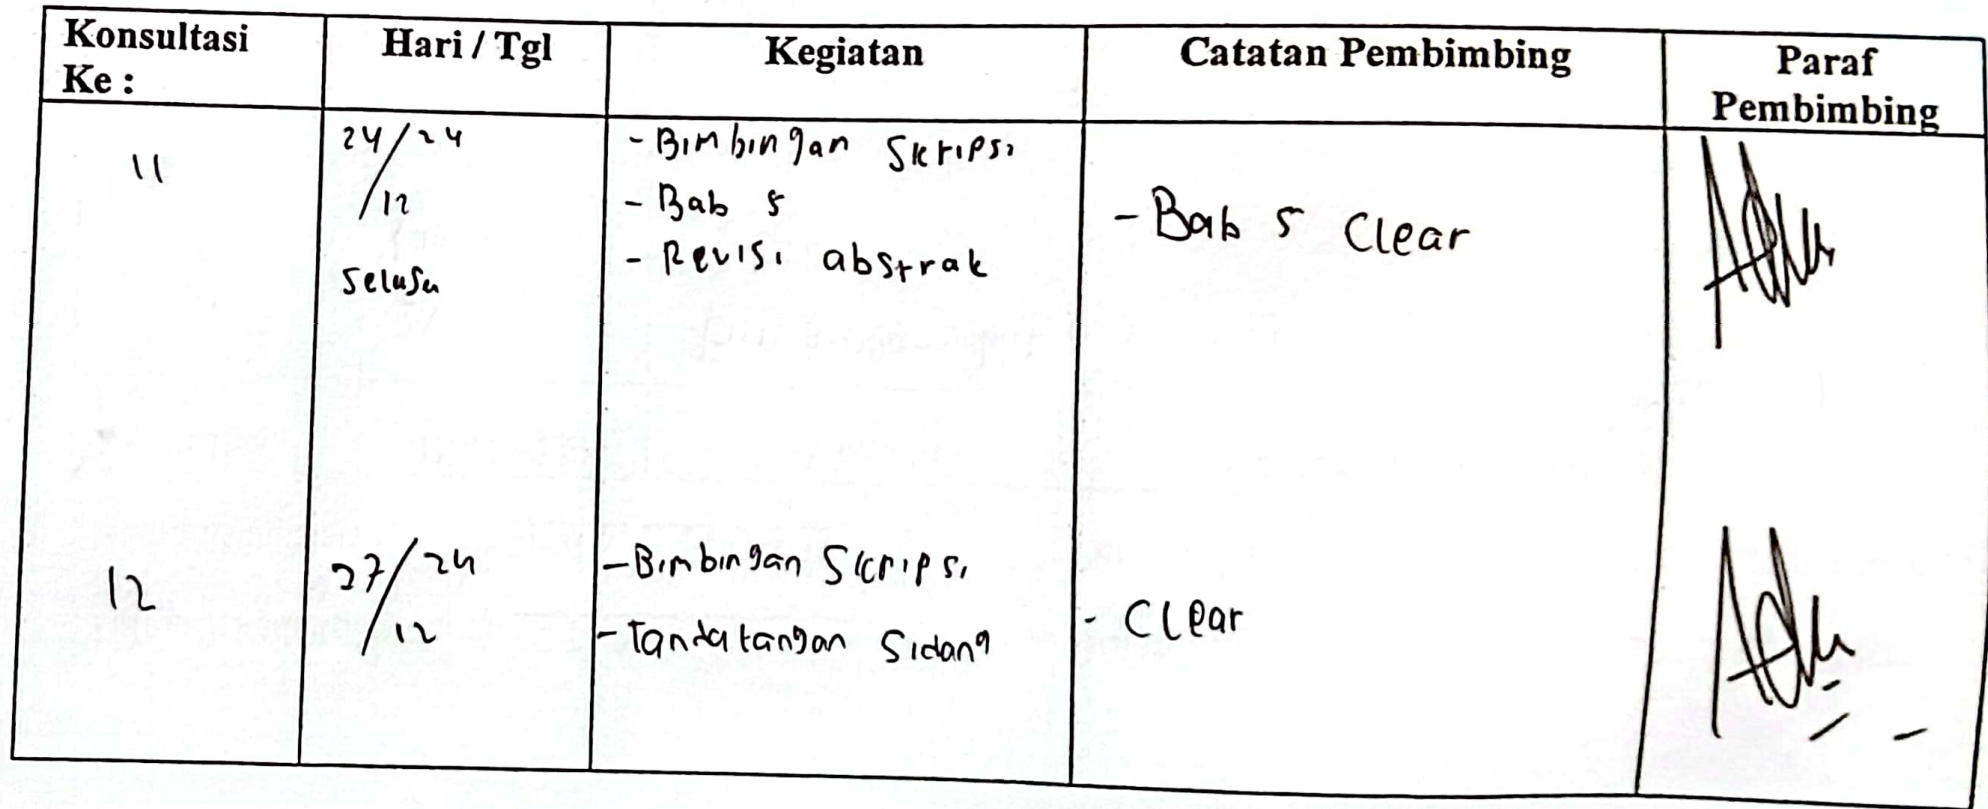 Konsultasi Ke :
Hari / Tgl
Kegiatan
Catatan Pembimbing
Paraf Pembimbing
11
24/24
/12
Selasa
- Bimbingan Skripsi
- Bab 5
- Revisi abstrak
- Bab 5 Clear
12
27/24
/12
- Bimbingan Skripsi
- Tandatangan Sidang
- Clear